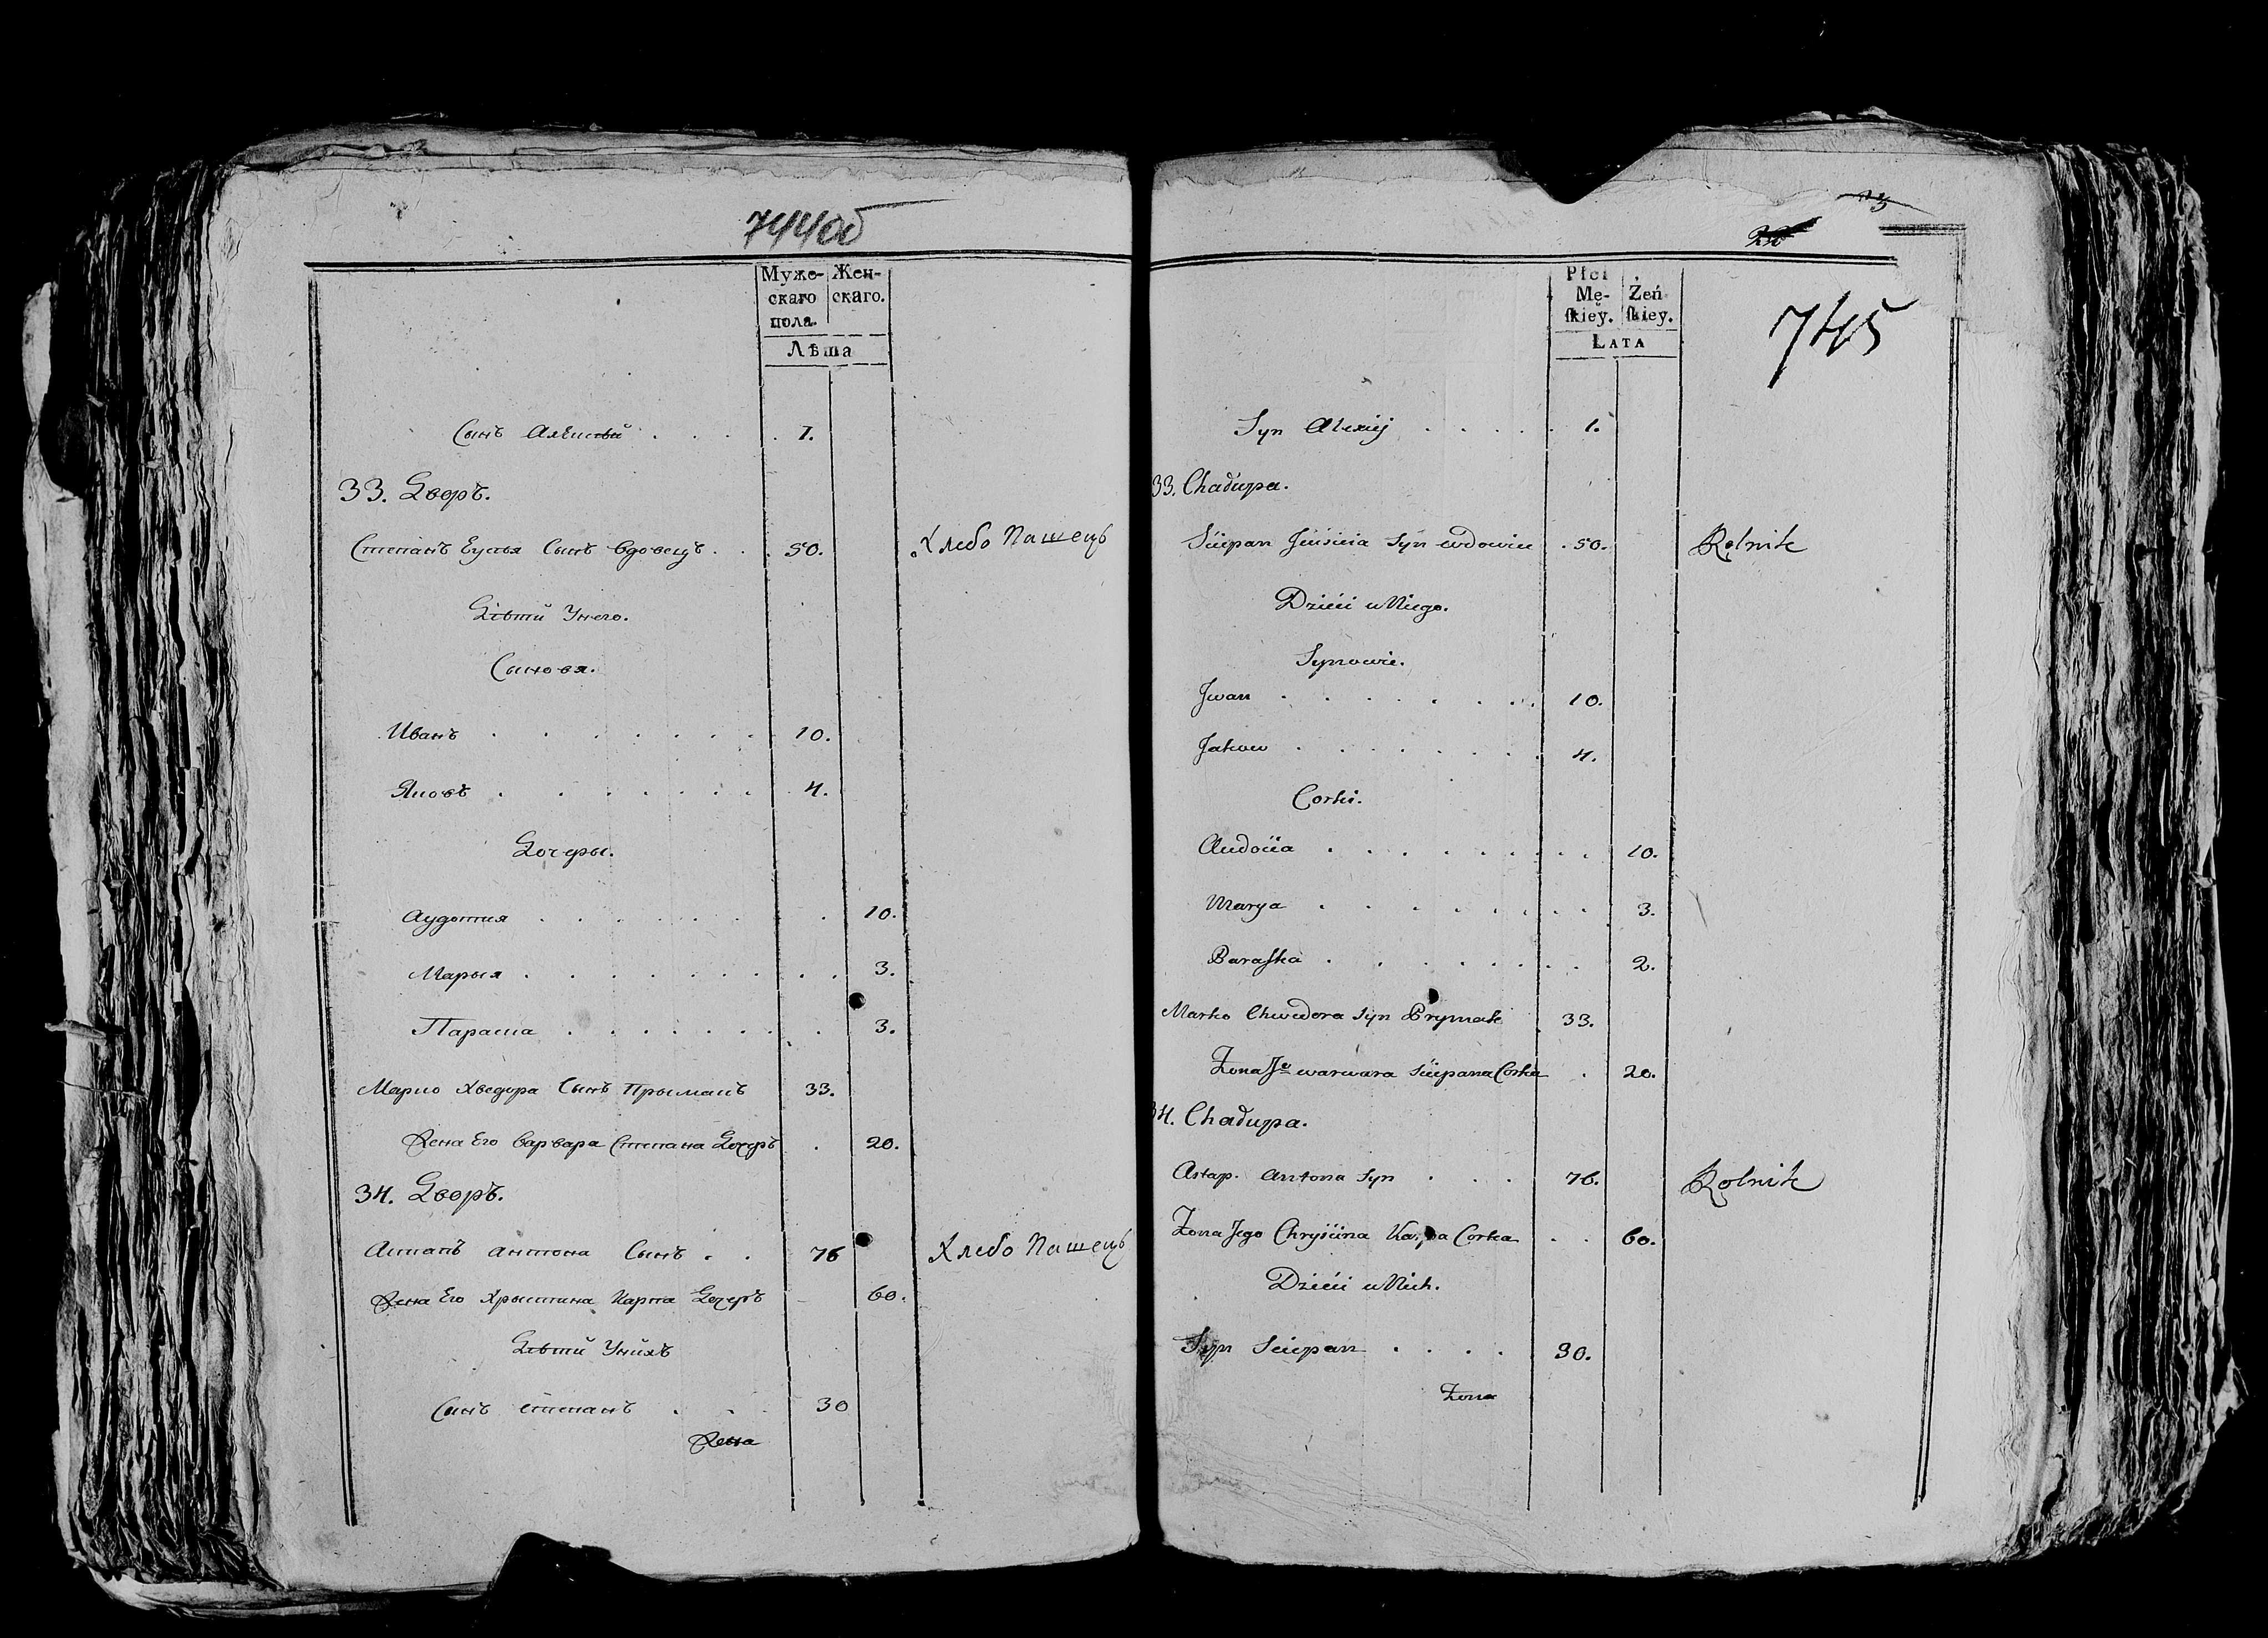 744об
Муже-
скаго
пола.
Жен-
скаго.
Лѣта
Сынъ Алексѣй . . . . 1.
33. Дворъ.
Степанъ Еусея Сынъ Вдовецъ . . . 50. Хлебо Пашецъ
Дѣтй Унего.
Сыновя.
Иванъ . . . . . . . 10.
Яковъ . . . . . . . 4.
Дочеры.
Аудотия . . . . . . 10.
Марыя . . . . . . . 3.
Параска . . . . . . . 3.
Марко Хведора Сынъ Прымакъ 33.
Жена Его Варвара Степана Дочеръ . 20.
34. Дворъ.
Астапъ Антона Сынъ . . 76 Хлебо Пашецъ
Жена Его Хрыстина Карпа Дочеръ 60.
Дѣтй Унихъ
Сынъ степанъ . . . 30
Жена
745
Płci
Mę-
skiey.
Żeń
skiey.
LATA
Syn Alexiej . . . . . 1.
33. Chałupa.
Sciepan Jeusieia Syn wdowiec . 50. Rolnik
Dzieci u Niego.
Synowie.
Jwan . . . . . . . 10.
Jakow . . . . . . . 4.
Corki.
Audocia . . . . . . . . 10.
Marya . . . . . . . . 3.
Paraska . . . . . . . 2.
Marko Chwedora Syn Prymak 33.
Zona Jo warwara Sciepana Corka . 20.
34. Chałupa.
Astap. Antona Syn . . . 76. Rolnik
Zona Jego Chryscina Karpa Corka . . 60.
Dzieci u Nich.
Syn Sciepan . . . . 30.
Zona